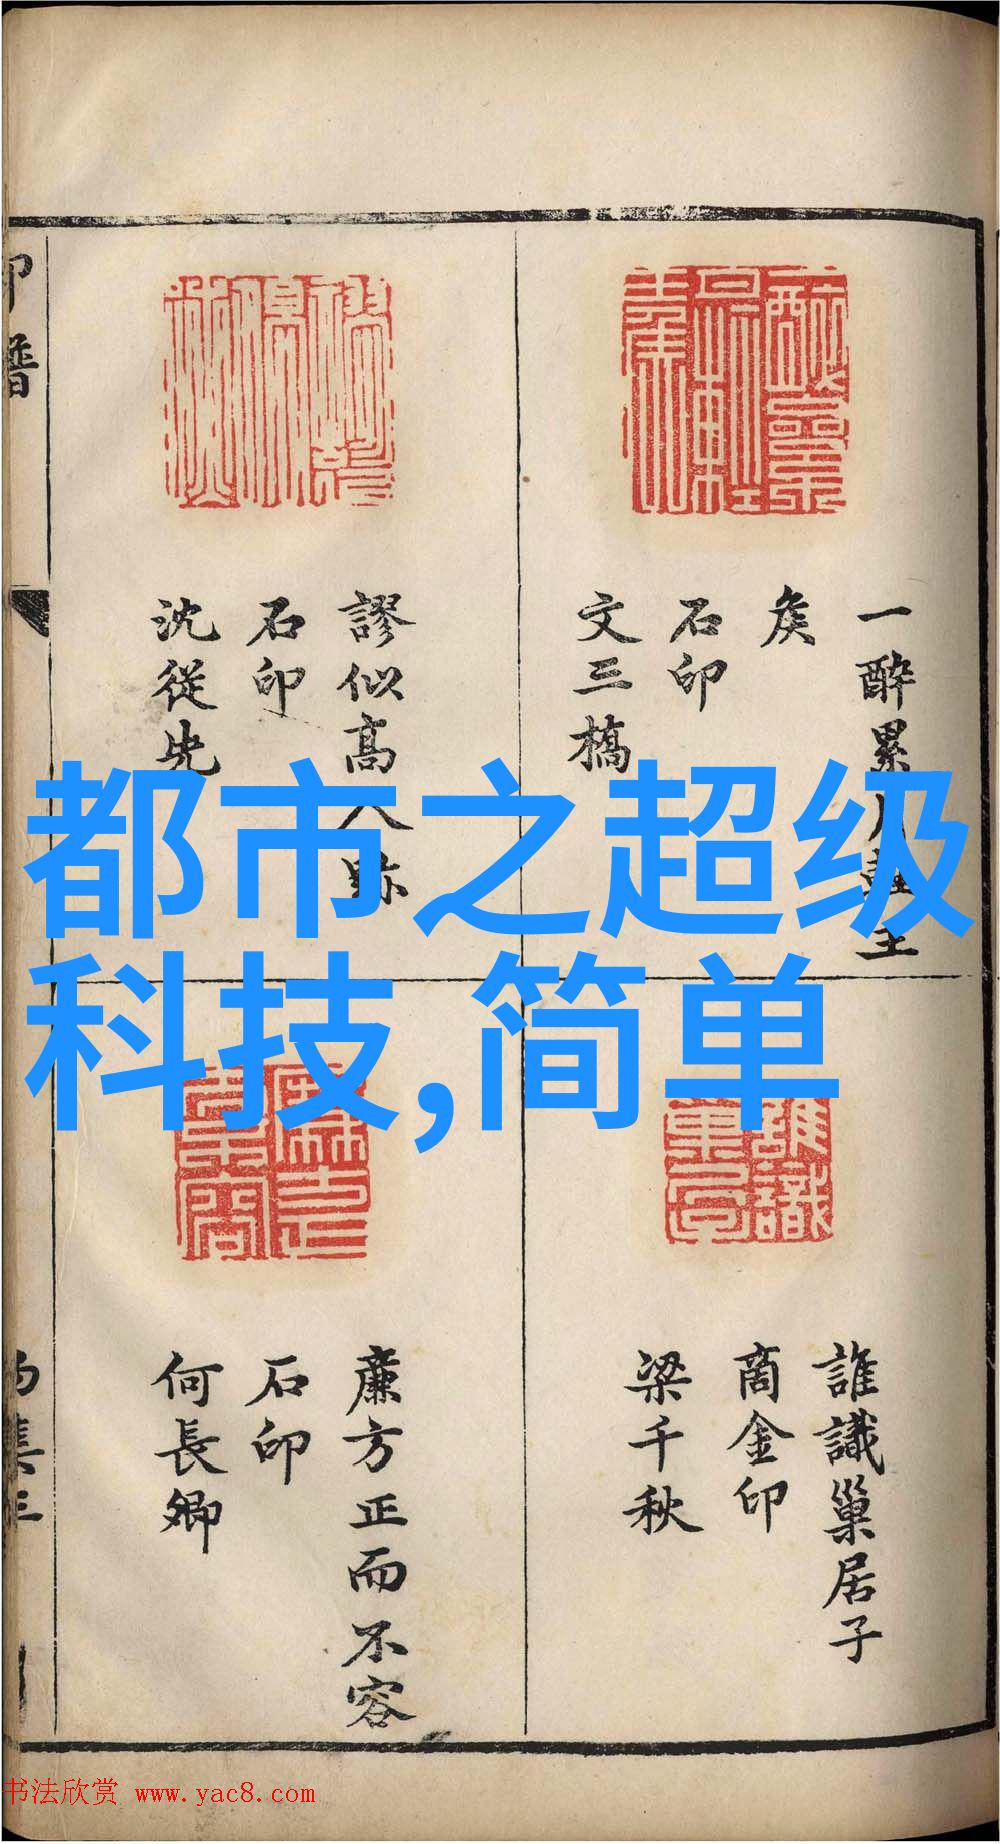 都市之超级
科技,简单
印譜
一醉累月輕王
矦
石印
文三橋
謬似高人跡
石印
沈從先
誰識巢居子
商金印
梁千秋
廉方正而不容
石印
何長卿
书法欣赏 www.yac8.com